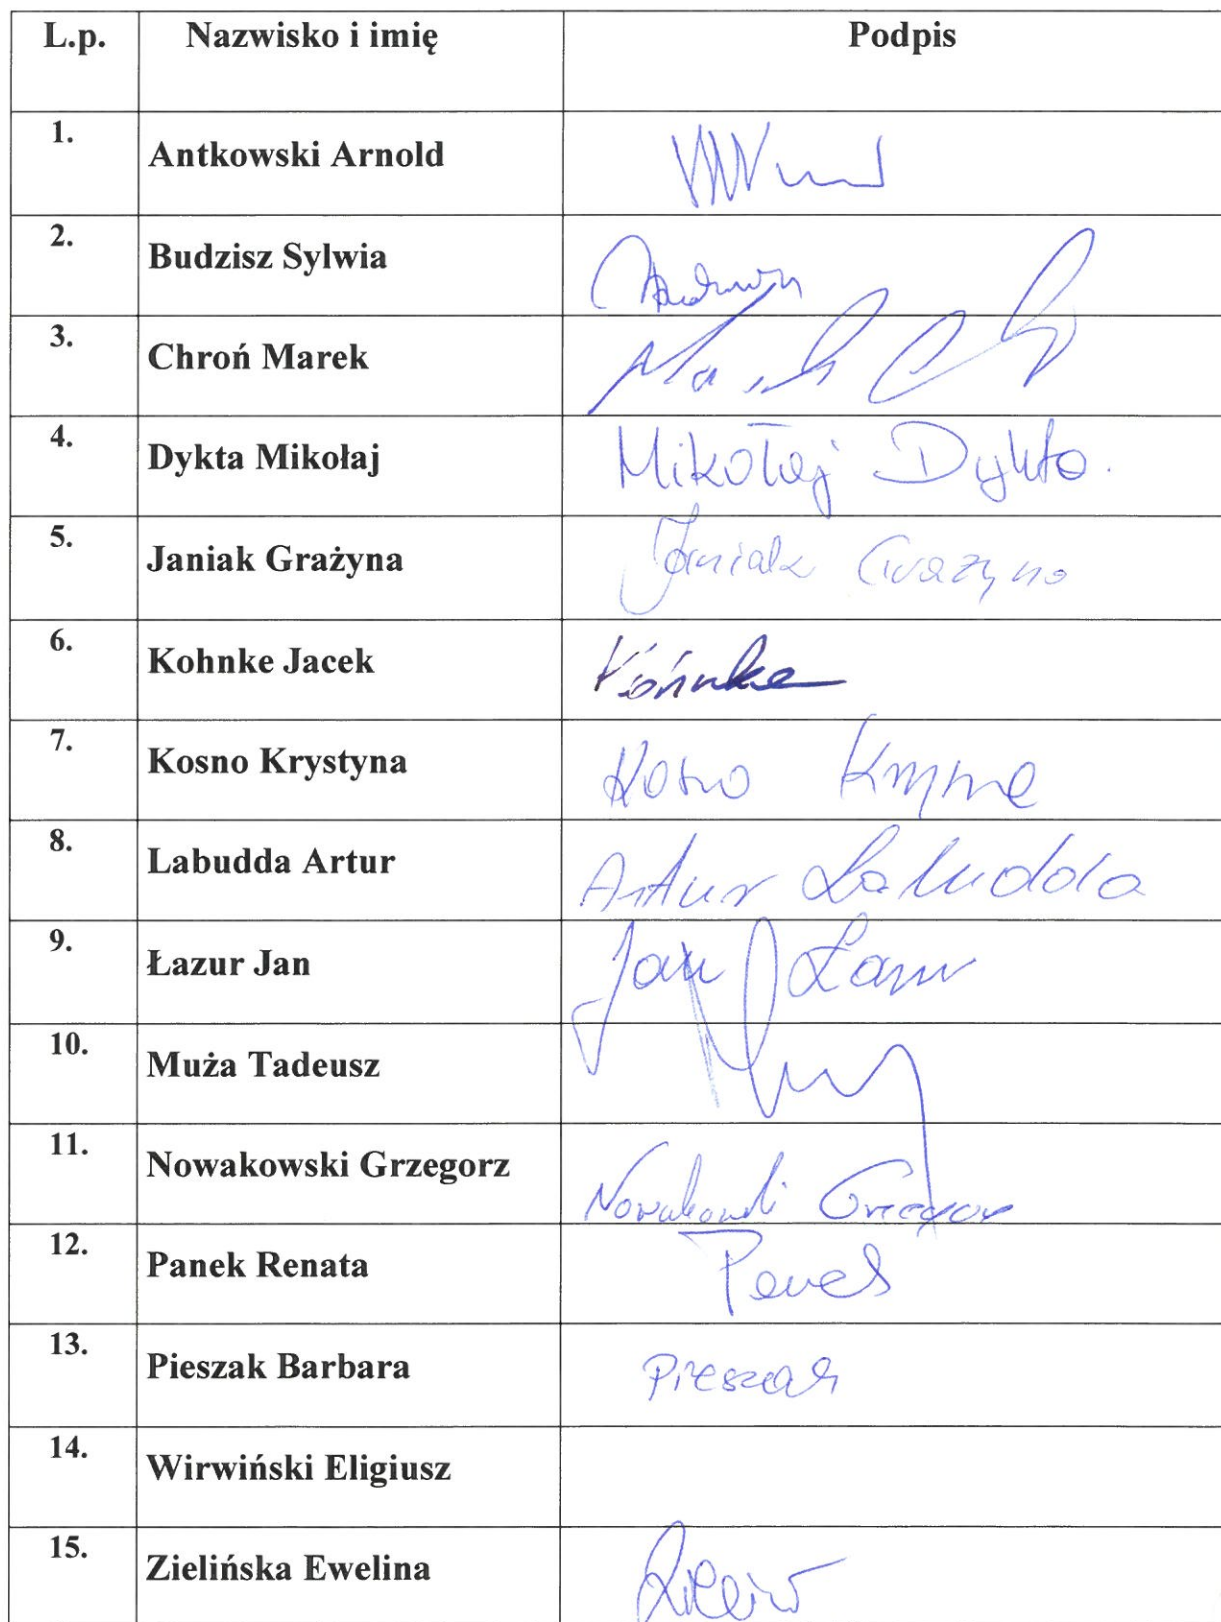 L.p. Nazwisko i imię Podpis
1. Antkowski Arnold
2. Budzisz Sylwia
3. Chroń Marek
4. Dykta Mikołaj Mikołaj Dykta.
5. Janiak Grażyna Janiak Grażyna
6. Kohnke Jacek Kohnke
7. Kosno Krystyna Kosno
8. Labudda Artur Artur Labudda
9. Łazur Jan Jan Łazur
10. Muża Tadeusz
11. Nowakowski Grzegorz Nowakowski Grzegorz
12. Panek Renata Panek
13. Pieszak Barbara Pieszak
14. Wirwiński Eligiusz
15. Zielińska Ewelina